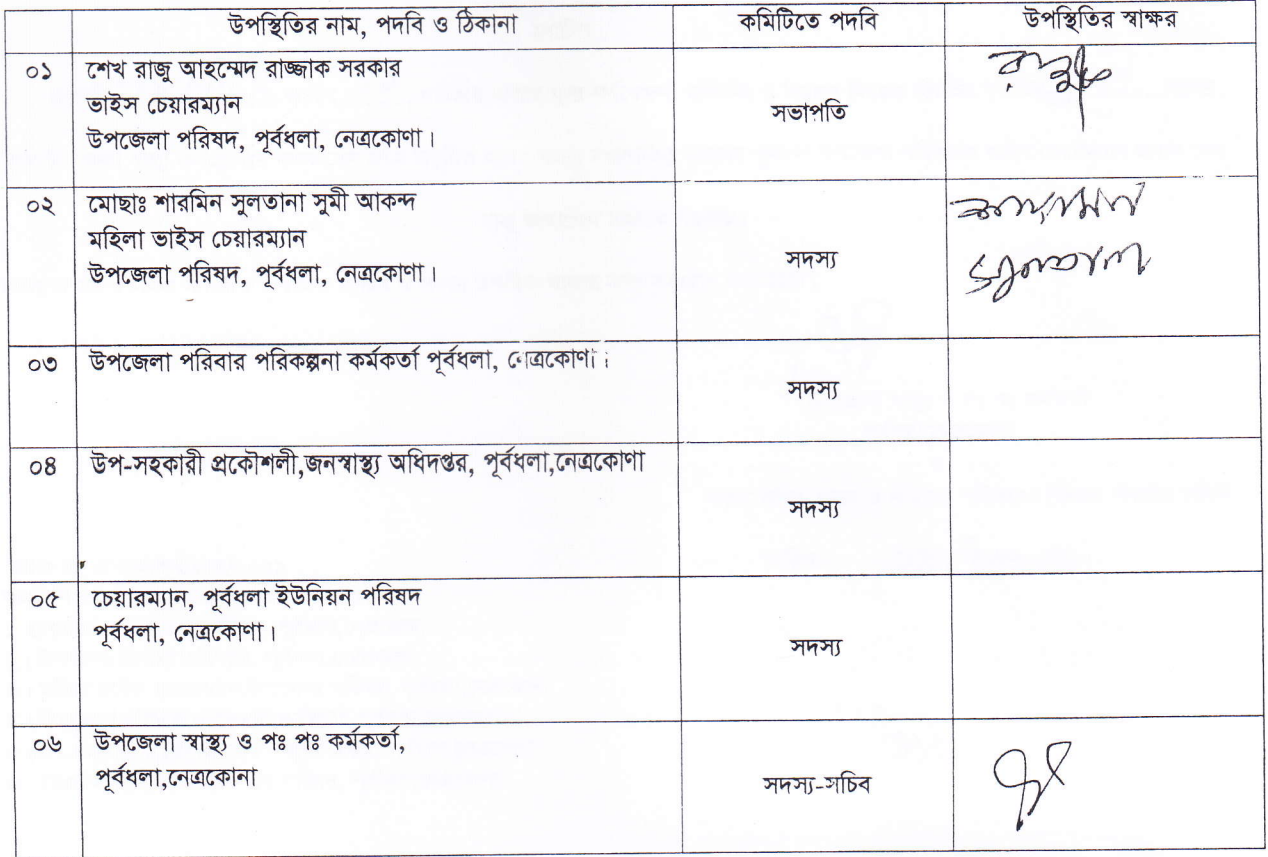 উপস্থিতির নাম, পদবি ও ঠিকানা কমিটিতে পদবি উপস্থিতির স্বাক্ষর
০১ শেখ রাজু আহম্মেদ রাজ্জাক সরকার
ভাইস চেয়ারম্যান
সভাপতি
উপজেলা পরিষদ, পূর্বধলা, নেত্রকোণা।
০২ মোছাঃ শারমিন সুলতানা সুমী আকন্দ
মহিলা ভাইস চেয়ারম্যান
সদস্য
উপজেলা পরিষদ, পূর্বধলা, নেত্রকোণা।
০৩ উপজেলা পরিবার পরিকল্পনা কর্মকর্তা পূর্বধলা, নেত্রকোণা।
সদস্য
০৪ উপ-সহকারী প্রকৌশলী,জনস্বাস্থ্য অধিদপ্তর, পূর্বধলা,নেত্রকোণা
সদস্য
০৫ চেয়ারম্যান, পূর্বধলা ইউনিয়ন পরিষদ
পূর্বধলা, নেত্রকোণা।
সদস্য
০৬ উপজেলা স্বাস্থ্য ও পঃ পঃ কর্মকর্তা,
পূর্বধলা,নেত্রকোনা
সদস্য-সচিব